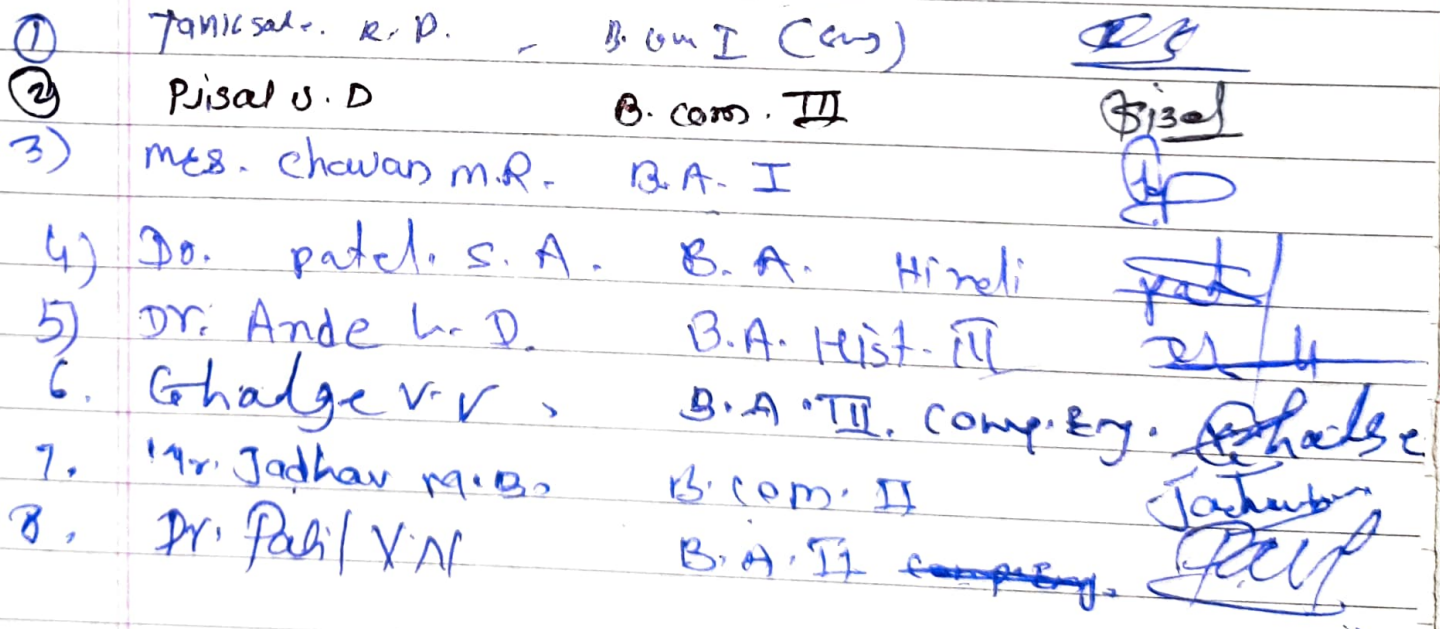 ① Tanksale. R. D. - B. Com I (Eng)
② Pisal S. D B. com. III Pisal
3) Mrs. Chavan M.R. B.A. I
4) Dr. patel. S. A. B. A. Hindi
5) Dr. Ande L. D. B.A. Hist. III
6. Ghadge V. V. B.A. III. Comp. Eng. Ghadge
7. Mr. Jadhav M.B. B. com. II Jadhav
8. Dr. Patil V.N B.A. II comp. Eng. Patil